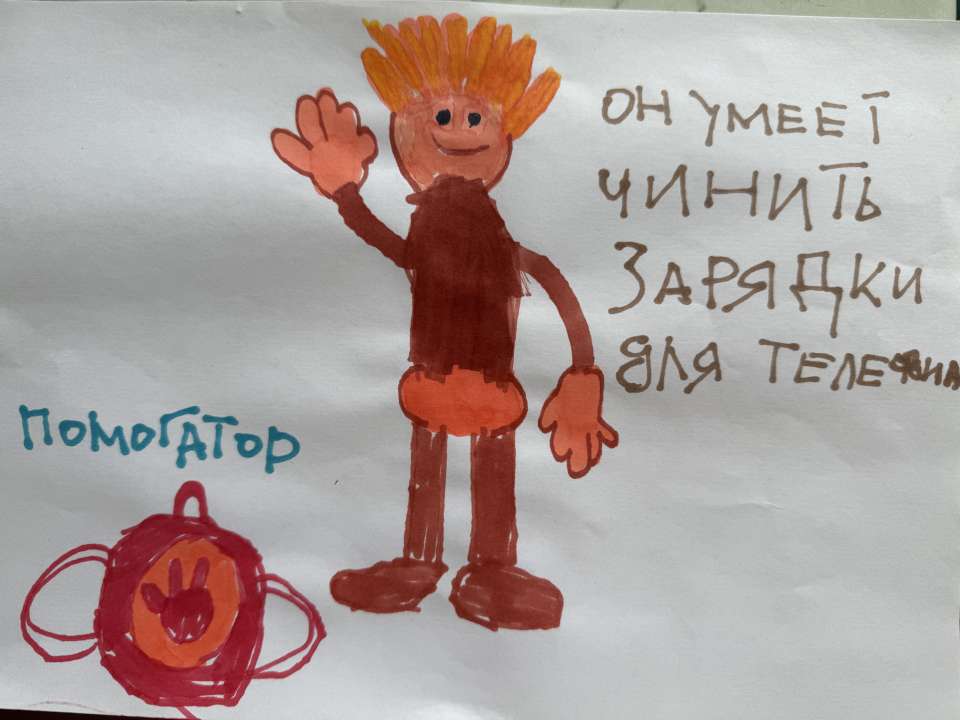 ОН УМЕЕТ
ЧИНИТЬ
ЗАРЯДКИ
ДЛЯ ТЕЛЕФИНА
ПОМОГАТОР